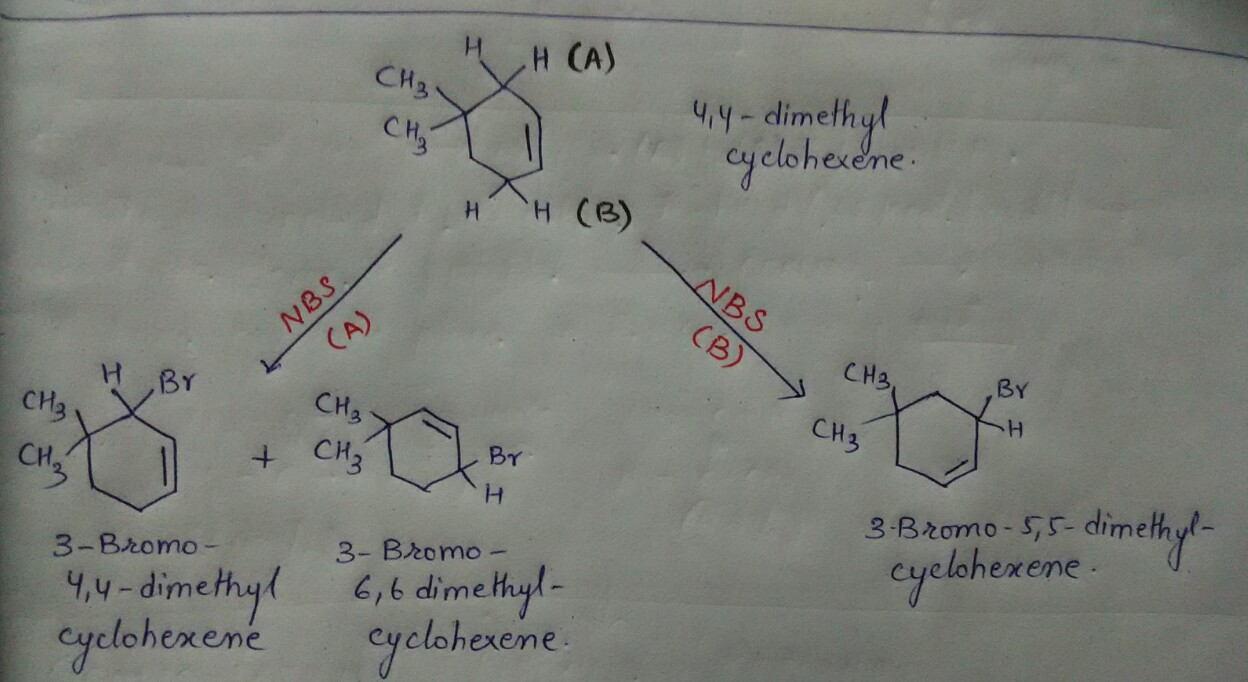 H
H (A)
CH3
CH3
4,4-dimethyl
cyclohexene.
H
H (B)
NBS
(A)
NBS
(B)
H
Br
CH3
CH3
+
CH3
CH3
Br
H
CH3
CH3
Br
H
3-Bromo-
4,4-dimethyl
cyclohexene
3-Bromo-
6,6 dimethyl-
cyclohexene.
3-Bromo-5,5-dimethyl-
cyclohexene.